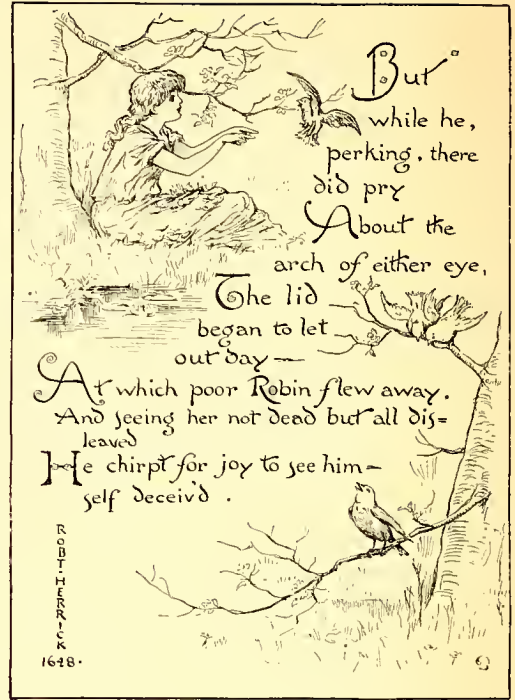 But
while he,
perking, there
did pry
About the
arch of either eye,
The lid
began to let
out day —
At which poor Robin flew away.
And seeing her not dead but all dis=
leaved
He chirpt for joy to see him—
self deceiv'd .
ROBT·HERRICK
1648·